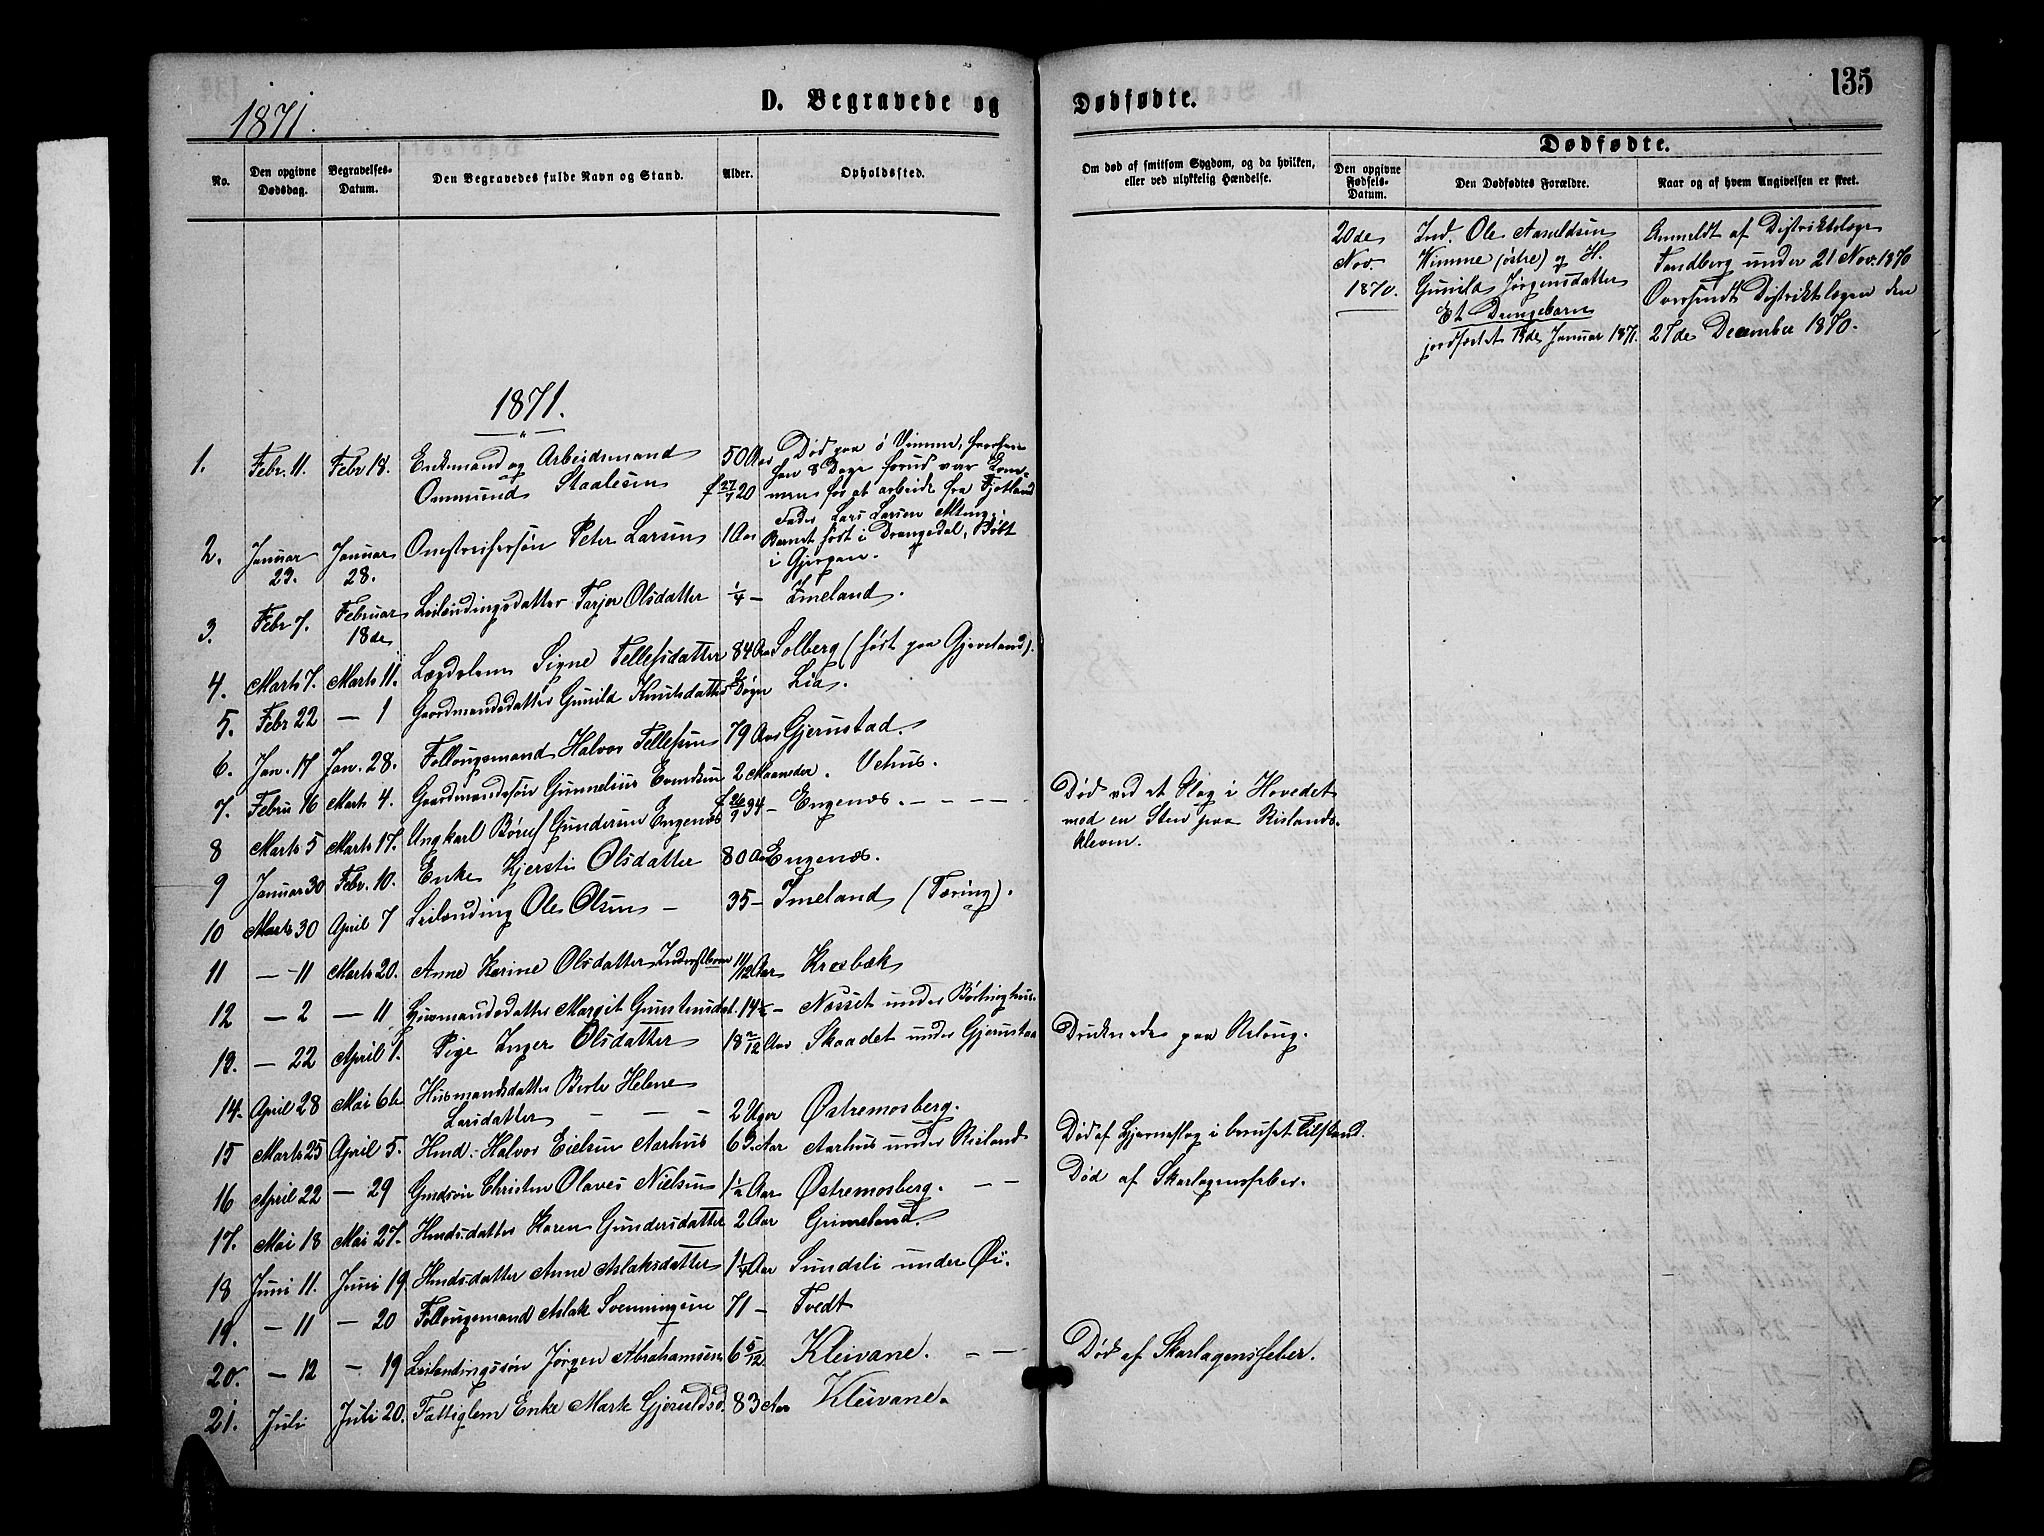 135
1871.
D. Begravede og Dødfødte.
No.
Den opgivne Dødsdag.
Begravelses-Datum.
Den Begravedes fulde Navn og Stand.
Alder.
Opholdssted.
Om død af smitsom Sygdom, og da hvilken, eller ved ulykkelig Hændelse.
Dødfødte.
Den opgivne Fødsels-Datum.
Den Dødfødtes Forældre.
Naar og af hvem Angivelsen er skeet.
20de Ind. Ole Aaneldsen Anmeldt af Distriktslæge
Nov. Vimme (østre) og H. Tandberg under 21 Nov. 1870
1870. Gunild Jørgensdatter Oversendt Distriktslægen den
Et Drengebarn 27de December 1870.
jordfæstet Januar 1871.
1871.
1. Febr. 11. Febr 18. Enkemand og Arbeidsmand 50 Aar Død paa ø Vimme, hvorhen
Ommund Staalesen f 27/7 20 han 8 Dage forud var kom-
men for at arbeide fra Fjotland
Fader Lars Larsen
2. Januar 23. Januar 28. Omstreifersøn Peter Larsen 1 Aar Barnet født i Drangedal, Døbt
i
3. Febr 7. Februar 18de Leilændingsdatter Tarjer Olsdatter 1/4 – Imeland.
4. Marts 7. Marts 11. Lægdslem Signe Tellefsdatter 84 Aar Solberg (født paa Gjeveland).
5. Febr 22 — 1 Gaardmandsdatter Gunild Knutsdatter Døgn Lia.
6. Jan. 17 Jan. 28. Follougsmand Halvor Tellefsen 79 Aar Gjerustad.
7. Febru 16 Marts 4. Gaardmandssøn Gunnelius Evensen 2 Maaneder. Vehus.
8 Marts 5 Marts 17. Ungkarl Børuf Gundersen Engenæs f 26/9 34 – Engenæs. – – – – Død ved et Slag i Hovedet
med en Sten paa Rislands-
kleven.
9 Januar 30 Febr. 10. Enke Kjersti Olsdatter 80 Aar Engenæs.
10 Marts 30 April 7 Leilænding Ole Olsen – 35 – Imeland (Tæring).
11 — 11 Marts 20. Anne Karine Olsdatter Inderstbarn 11/12 Aar Krosbæk
12 — 2 — 11 Husmandsdatter Margit Gunstensdat. 14 – Næsset under Børtinghus.
13. — 22 April 1. Pige Inger Olsdatter 18 2/12 Aar Skaadet under Gjerustad Druknede paa
14. April 28 Mai 6te Husmandsdatter Berte Helene
Larsdatter – – – 2 Uger Østremosberg.
15 Marts 25 April 5. Hmd. Halvor Eielsen Aarhus 69 Aar Aarhus under Risland Død af Hjerneslag i beruset Tilstand.
16 April 22 — 29 Gmdsøn Christen Olaves Nielsen 1 1/2 Aar Østremosberg. – – Død af Skarlagensfeber.
17. Mai 18 Mai 27. Hmdsdatter Karen Gundersdatter 2 Aar Grimeland.
18 Juni 11. Juni 19 Hmdsdatter Anne Aslaksdatter 1 1/4 Aar Sundsli under Øi.
19. — 11 — 20 Follougsmand Aslak Svenningsen 71 – Tvedt
20. — 12 — 19 Leilændingssøn Jørgen Abrahamsen 6 5/12 Kleivane. – – Død af Skarlagensfeber.
21. Juli Juli 20. Fattiglem Enke Marte Gjeruldsd. 83 Aar Kleivane.